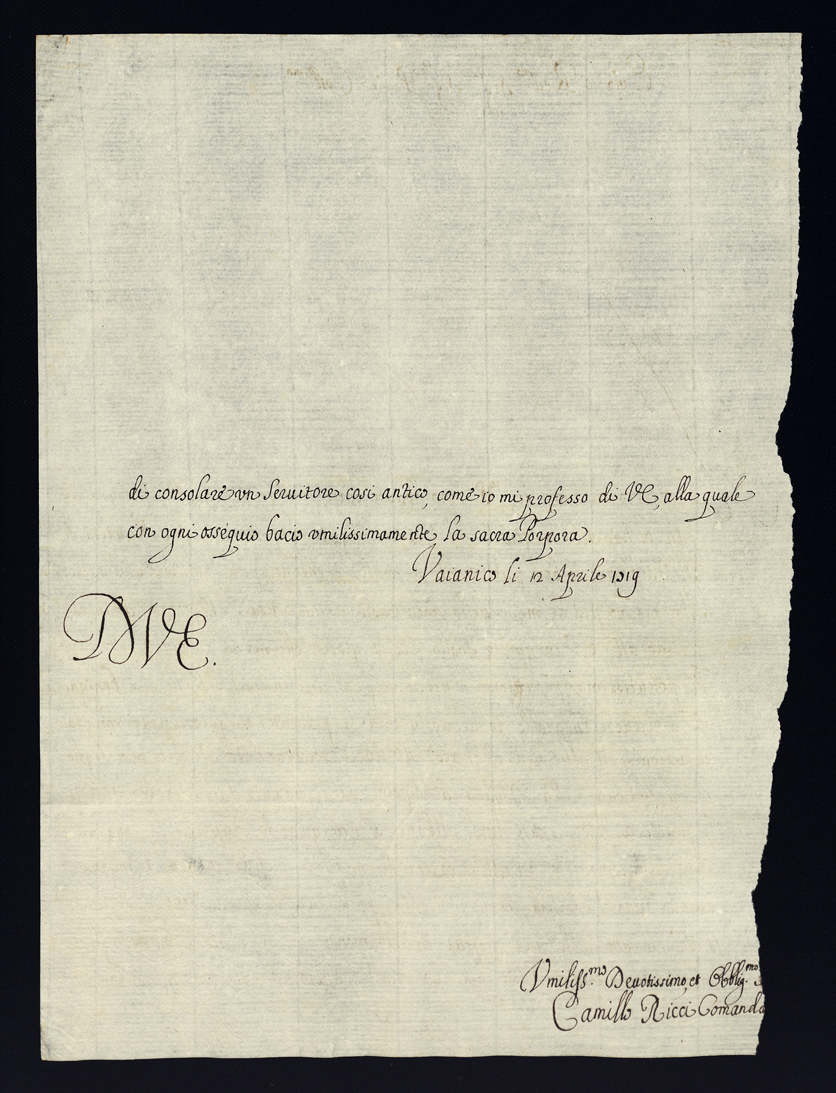 di consolare vn Seruitore cosi antico, come io mi professo di VE, alla quale
con ogni osséquio bacio vmilissimamente la sacra Porpora.
Vaianico li 12 Aprile 1719
DVE.
Vmiliss.mo Deuotissimo, et Obblig.mo
Camillo Ricci Comanda